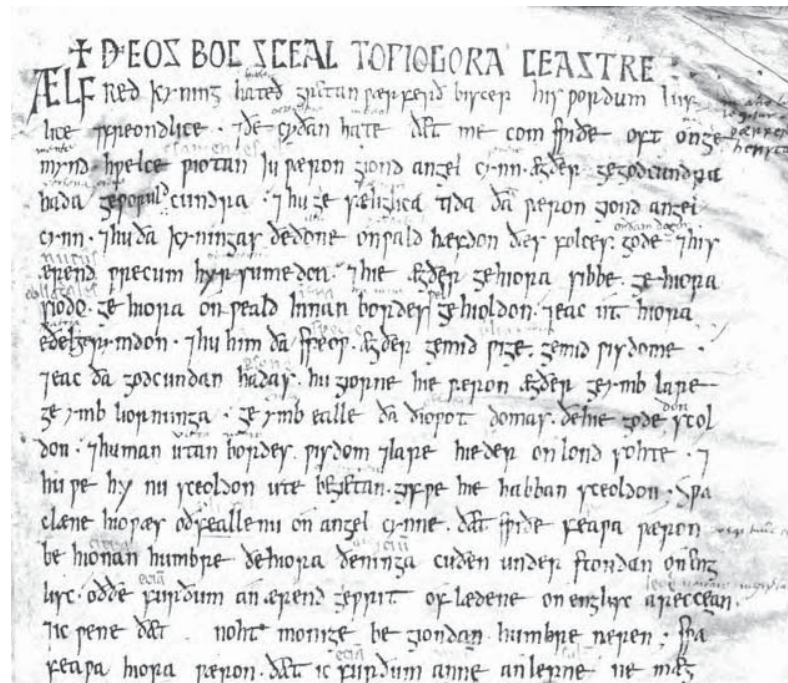 + ÐEOS BOC SCEAL TO ǷIOGORA CEASTRE
ÆLFRED kyning hateð gretan ƿærferð biscep his ƿordum luf
lice ⁊ freondlice · ⁊ ðe cyðan hate ðæt me com sƿiðe oft on ge
mynd hƿelce ƿiotan iu ƿæron giond angel cynn · ægðer ge godcundra
hada ge ƿoruld cundra · ⁊ hu gesæliglica tida ða ƿæron giond angel
cynn · ⁊ hu ða kyningas ðe ðone onƿald hæfdon ðæs folces · gode ⁊ his
ærend ƿrecum hyrsumedon · ⁊ hie ægðer ge hiora sibbe · ge hiora
siodo · ge hiora on ƿeald innan bordes gehioldon · ⁊ eac ut hiora
eðel gerymdon · ⁊ hu him ða speoƿ · ægðer ge mid ƿige · ge mid ƿisdome ·
⁊ eac ða godcundan hadas · hu giorne hie ƿæron ægðer ge ymb lare
ge ymb liornunga · ge ymb ealle ða ðioƿot domas · ðe hie gode scol
don · ⁊ hu man utan bordes · ƿisdom ⁊ lare hieder on lond sohte · ⁊
hu ƿe hy nu sceoldon ute begietan · gif ƿe hie habban sceoldon · Sƿa
clæne hio ƿæs oðfeallenu on angel cynne · ðæt sƿiðe feaƿa ƿæron
be hionan humbre ðe hiora ðeninga cuðen under stondan on eng
lisc · oððe furðum an ærend geƿrit of lædene on englisc areccean ·
⁊ ic ƿene ðæt noht monige be giondan humbre næren ; sƿa
feaƿa hiora ƿæron · ðæt ic furðum anne anlepne ne mæg